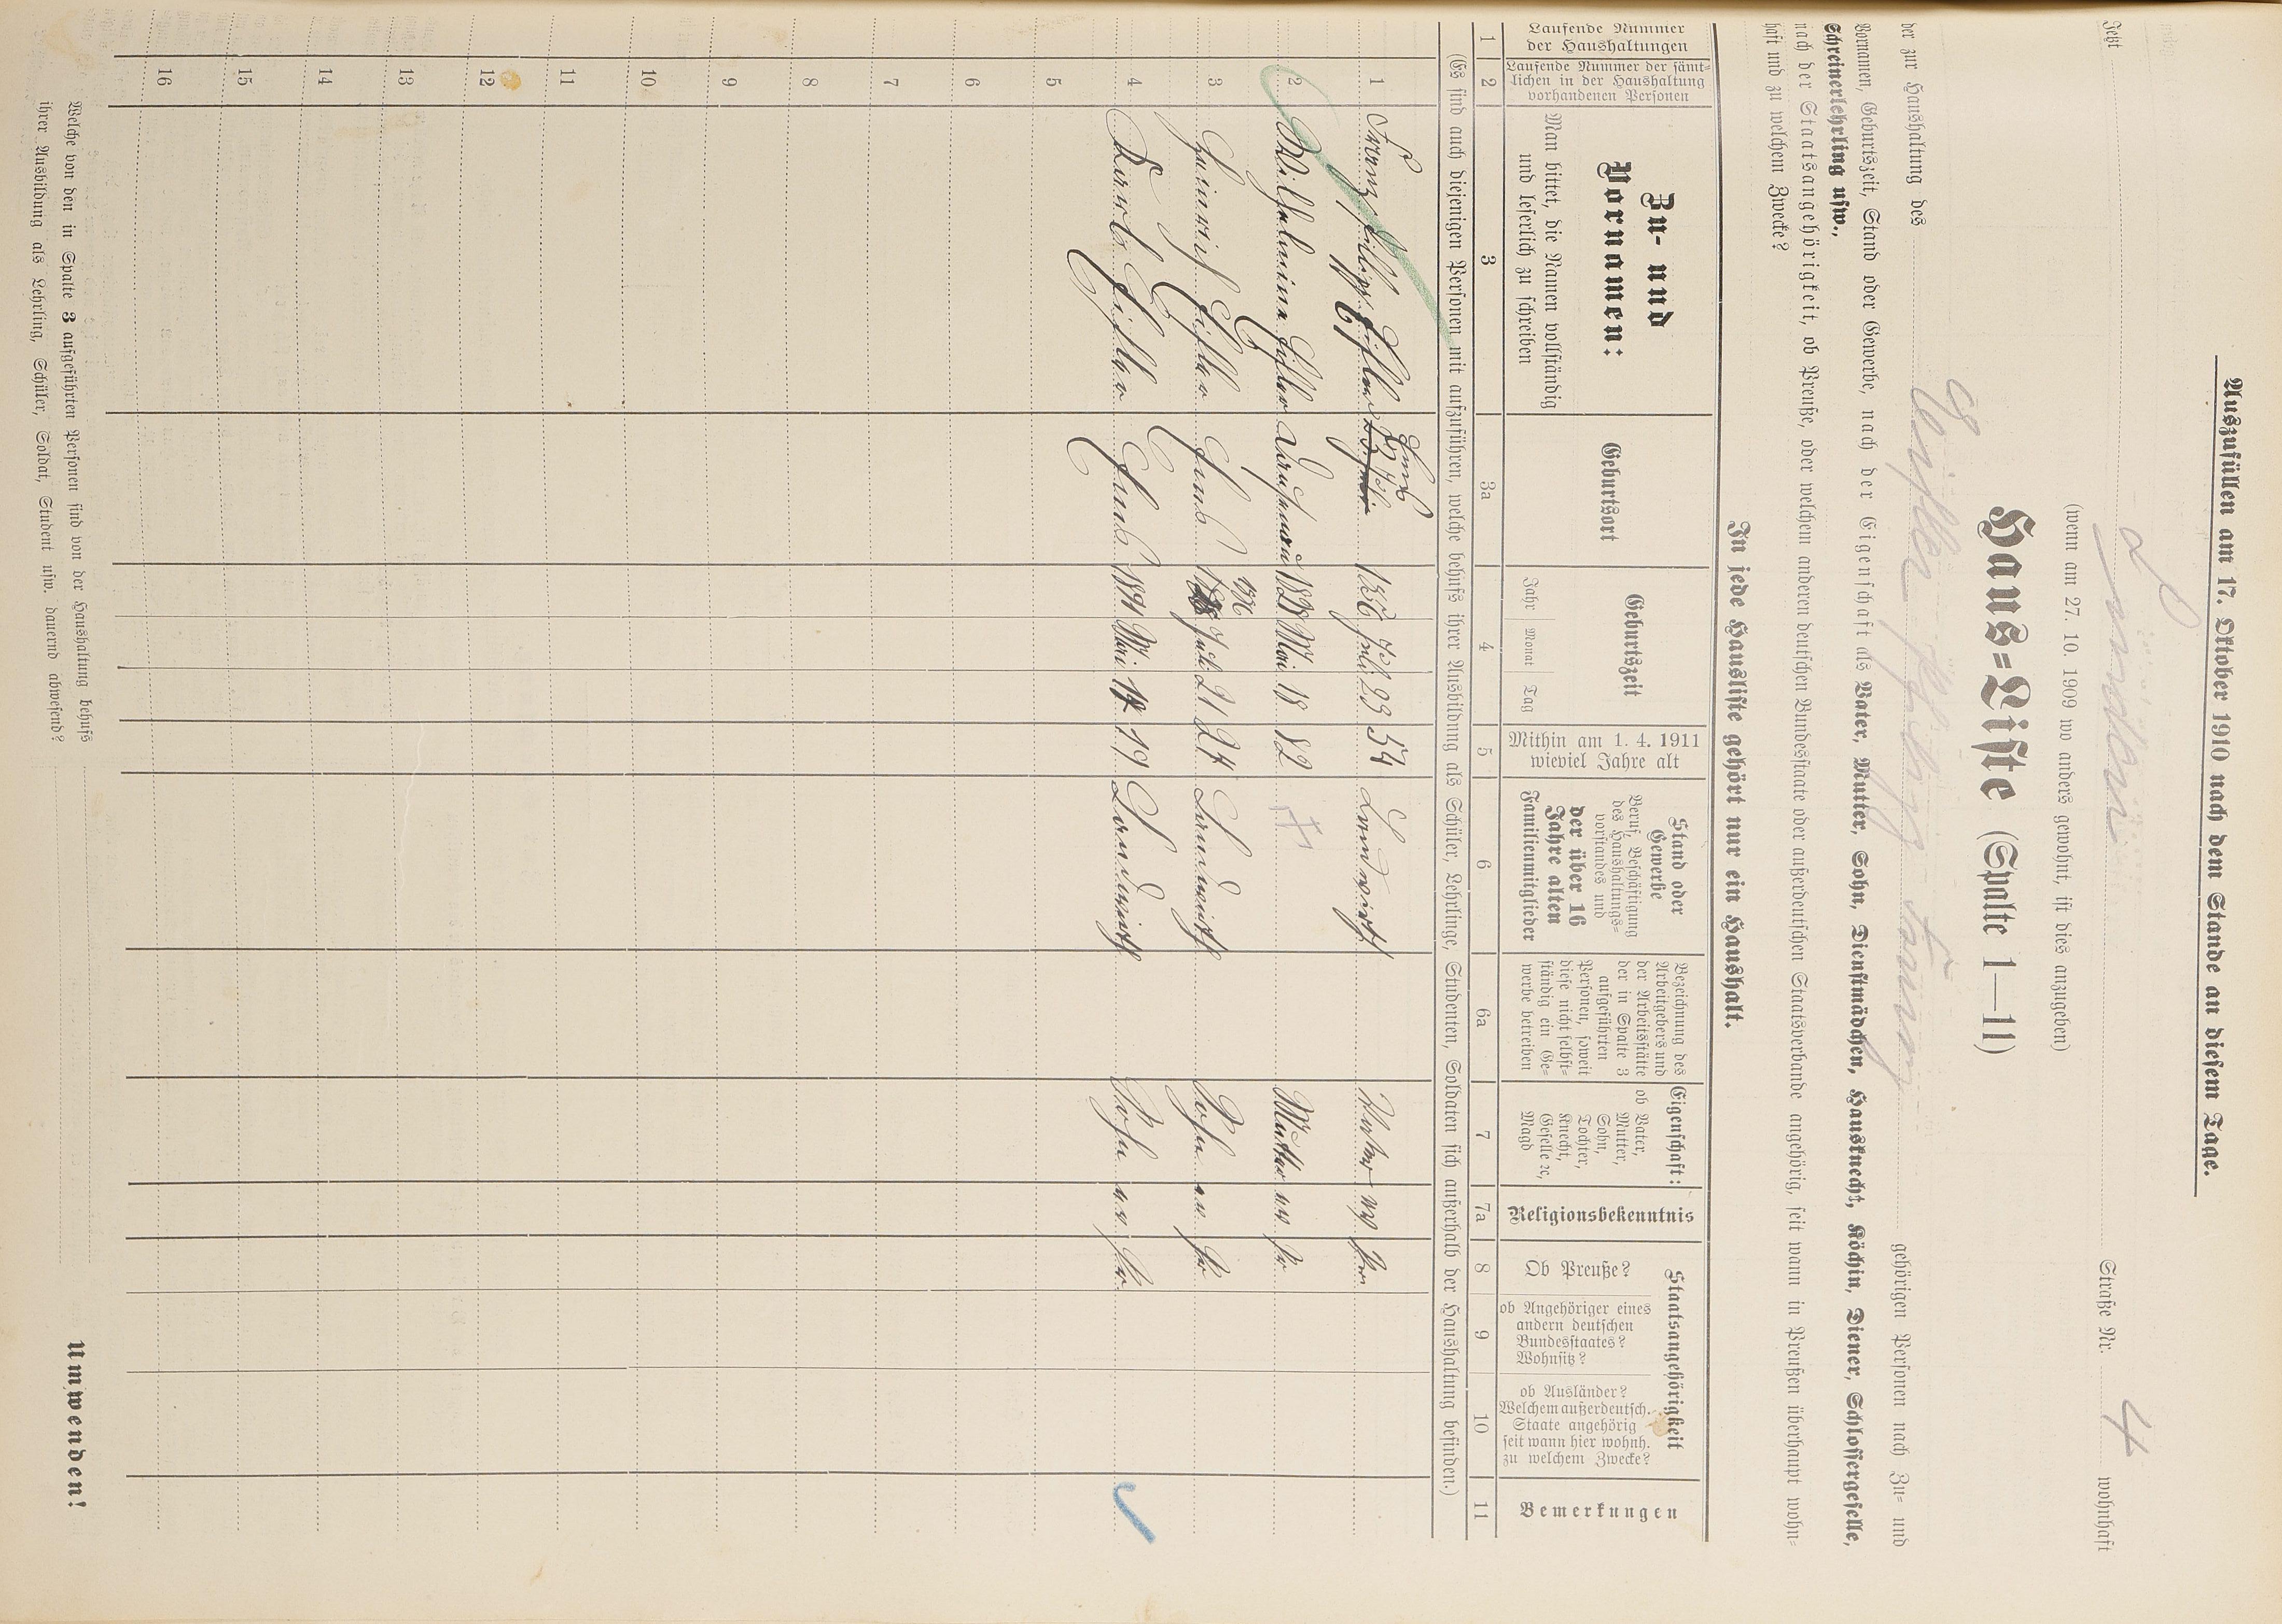 Auszufüllen am 17. Oktober 1910 nach dem Stande an diesem Tage.
Jetzt Linden Straße Nr. 4 wohnhaft
(wenn am 27. 10. 1909 wo anders gewohnt, ist dies anzugeben)
Haus-Liste (Spalte 1—11)
der zur Haushaltung des gehörigen Personen nach Zu- und
Vornamen, Geburtszeit, Stand oder Gewerbe, nach der Eigenschaft als Vater, Mutter, Sohn, Dienstmädchen, Hausknecht, Köchin, Diener, Schlossergeselle,
Schreinerlehrling usw.,
nach der Staatsangehörigkeit, ob Preuße, oder welchem anderen deutschen Bundesstaate oder außerdeutschen Staatsverbande angehörig, seit wann in Preußen überhaupt wohn-
haft und zu welchem Zwecke?
In jede Hausliste gehört nur ein Haushalt.
Laufende Nummer der Haushaltungen
Laufende Nummer der sämt-
lichen in der Haushaltung
vorhandenen Personen
Zu- und
Vornamen:
Man bittet, die Namen vollständig
und leserlich zu schreiben
Geburtsort
Geburtszeit
Jahr Monat Tag
Mithin am 1. 4. 1911
wieviel Jahre alt
Stand oder
Gewerbe
Beruf, Beschäftigung
des Haushaltungs-
vorstandes und
der über 16
Jahre alten
Familienmitglieder
Bezeichnung des
Arbeitgebers und
der Arbeitsstätte
der in Spalte 3
aufgeführten
Personen, soweit
diese nicht selbst-
ständig ein Ge-
werbe betreiben
Eigenschaft:
ob Vater,
Mutter,
Sohn,
Tochter,
Knecht,
Geselle ec,
Magd
Religionsbekenntnis
Staatsangehörigkeit
Ob Preuße?
ob Angehöriger eines
andern deutschen
Bundesstaates?
Wohnsitz?
ob Ausländer?
Welchem außerdeutsch.
Staate angehörig
seit wann hier wohnh.
zu welchem Zwecke?
Bemerkungen
1 2 3 3a 4 5 6 6a 7 7a 8 9 10 11
(Es sind auch diejenigen Personen mit aufzuführen, welche behufs ihrer Ausbildung als Schüler, Lehrlinge, Studenten, Soldaten sich außerhalb der Haushaltung befinden.)
1 Ems 1856 54 Landwirth Vater Pr
2 Wilhelmina 1828 Mai 18 82 Mutter Pr
1886
3 Heinrich Ems Juli 21 24 Landwirth Sohn Pr
4 Ems 1891 Mai 19 Landwirth Sohn Pr
5
6
7
8
9
10
11
12
13
14
15
16
Welche von den in Spalte 3 aufgeführten Personen sind von der Haushaltung behufs
ihrer Ausbildung als Lehrling, Schüler, Soldat, Student usw. dauernd abwesend?
Umwenden!